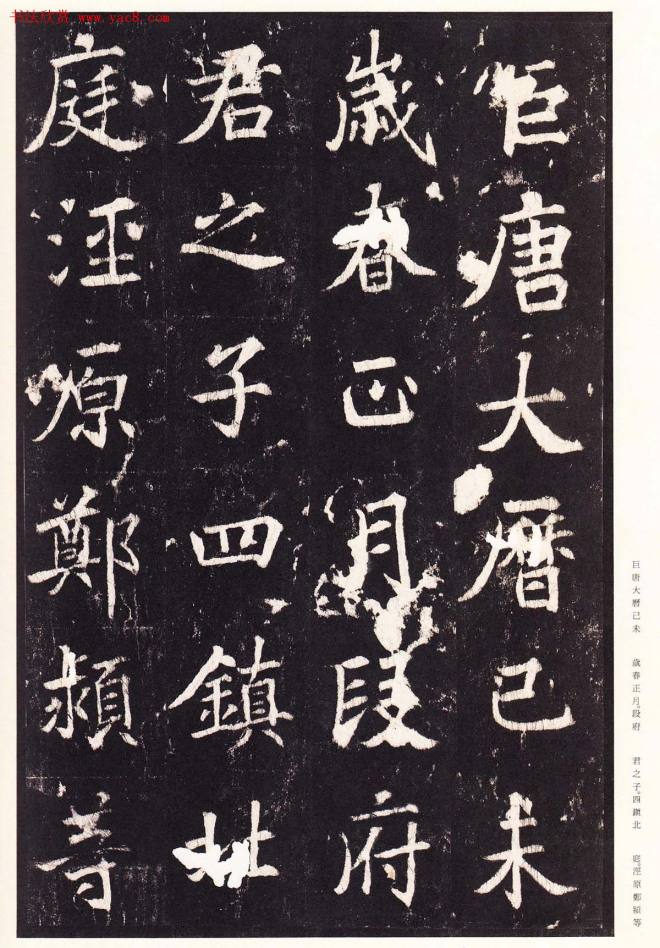 书法欣赏 www.yac8.com
巨唐大曆己未
歲春正月段府
君之子四鎮北
庭涇原鄭頻等
巨唐大曆己未 歲春正月。段府 君之子。四鎮北 庭。涇原鄭潁等